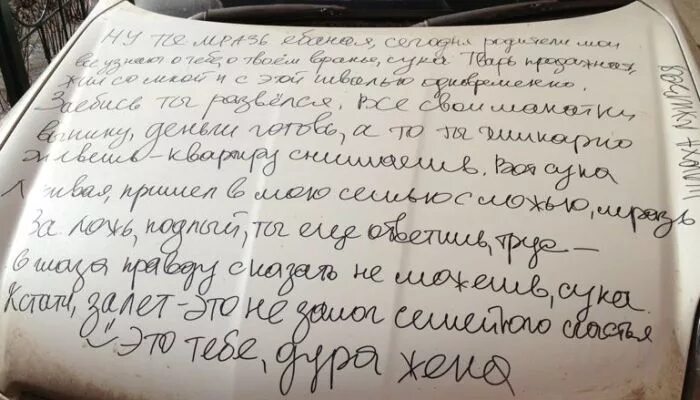 НУ ТЫ МРАЗЬ ебаная, сегодня родители мои
все узнают о тебе, о твоём вранье, сука Тварь продажная,
жил со мной и с этой швалью одновременно.
Заебись ты развёлся. Все свои манатки
выкину, деньги готовь, а то ты шикарно
живешь - квартиру снимаешь. Вот сука
лживая, пришел в мою семью с ложью, мразь
За ложь, подлый, ты еще ответишь, трус —
в глаза правду сказать не можешь, сука.
Кстати, залет - это не залог семейного счастья
Это тебе, дура жена